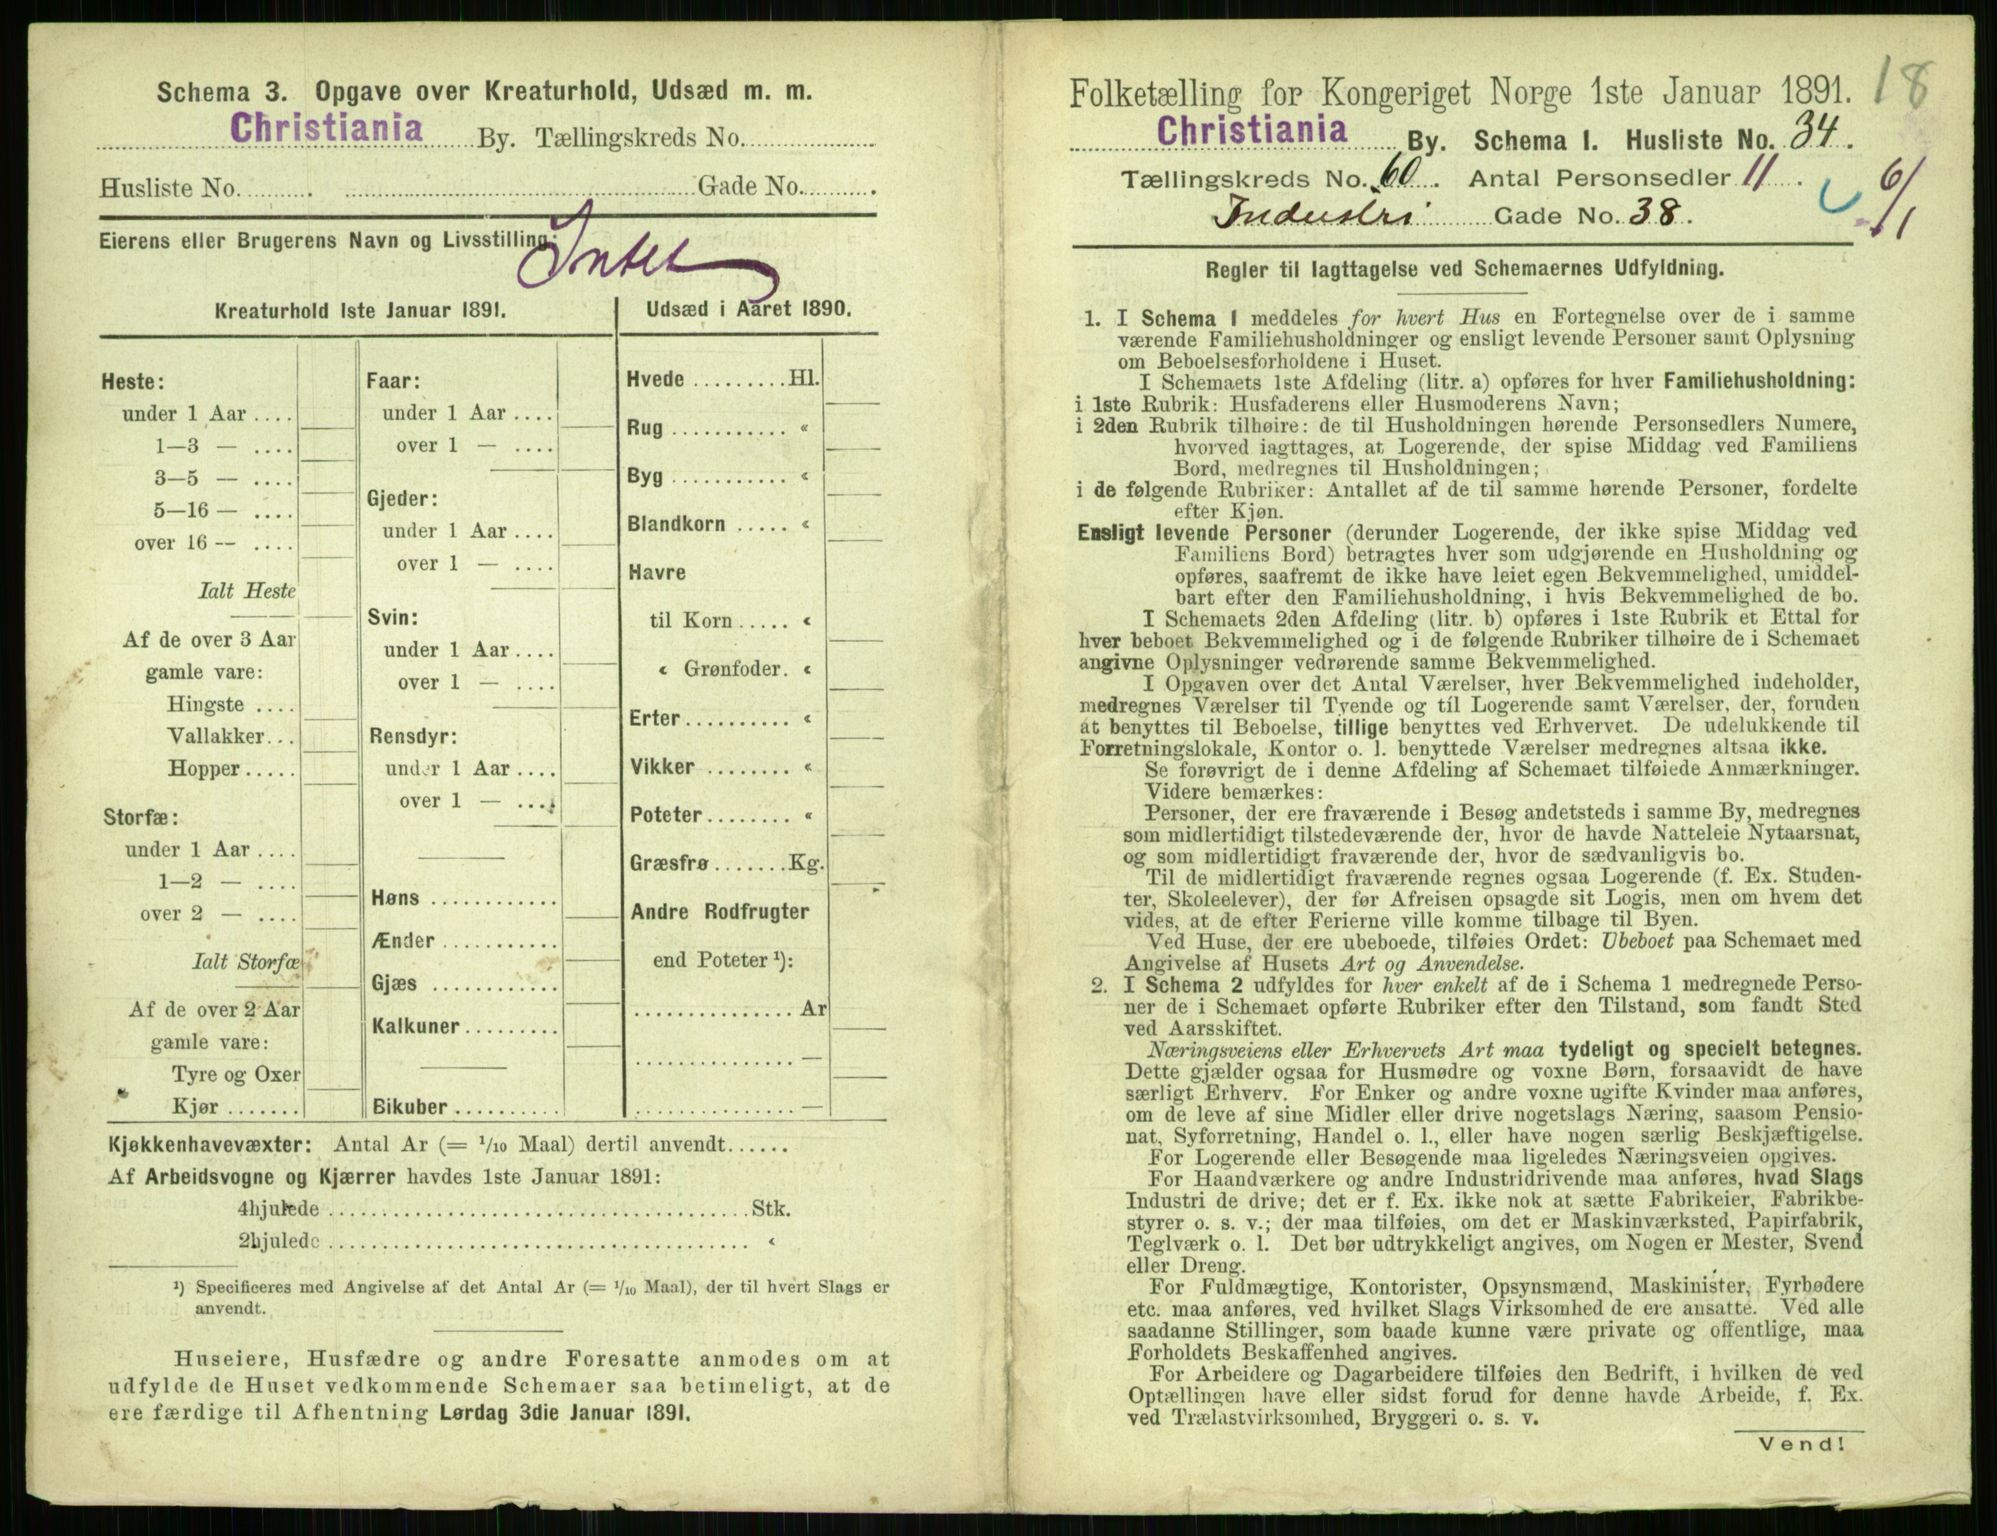 Schema 3. Opgave over Kreaturhold, Udsæd m. m.
Christiania By. Tællingskreds No.
Husliste No. Gade No.
Eierens eller Brugerens Navn og Livsstilling:
Intet
Kreaturhold 1ste Januar 1891.
Heste:
under 1 Aar ....
1—3 — ....
3—5 — ....
5—16 — ....
over 16 — ....
Ialt Heste
Af de over 3 Aar
gamle vare:
Hingste ....
Vallakker...
Hopper.....
Storfæ:
under 1 Aar ....
1—2 — ....
over 2 — ....
Ialt Storfæ
Af de over 2 Aar
gamle vare:
Tyre og Oxer
Kjør .......
Faar:
under 1 Aar ....
over 1 — ....
Gjeder:
under 1 Aar ....
over 1 — ....
Svin:
under 1 Aar ....
over 1 — ....
Rensdyr:
under 1 Aar ....
over 1 — ....
Høns ............
Ænder ...........
Gjæs ............
Kalkuner.........
Bikuber ..........
Udsæd i Aaret 1890.
Hvede .........Hl.
Rug ........... «
Byg ........... «
Blandkorn ..... «
Havre
til Korn ..... «
« Grønfoder. «
Erter.......... «
Vikker ........ «
Poteter........ «
Græsfrø .......Kg.
Andre Rodfrugter
end Poteter ¹):
............... Ar
............... —
............... —
Kjøkkenhavevæxter: Antal Ar (= ¹/₁₀ Maal) dertil anvendt......
Af Arbeidsvogne og Kjærrer havdes 1ste Januar 1891:
4hjulede ........................................Stk.
2hjulede ........................................ «
¹) Specificeres med Angivelse af det Antal Ar (= ¹/₁₀ Maal), der til hvert Slags er
anvendt.
Huseiere, Husfædre og andre Foresatte anmodes om at
udfylde de Huset vedkommende Schemaer saa betimeligt, at de
ere færdige til Afhentning Lørdag 3die Januar 1891.
18
Folketælling for Kongeriget Norge 1ste Januar 1891.
Christiania By. Schema 1. Husliste No. 34.
Tællingskreds No. 60. Antal Personsedler 11.
6/1
Industri Gade No. 38.
Regler til Iagttagelse ved Schemaernes Udfyldning.
1. I Schema 1 meddeles for hvert Hus en Fortegnelse over de i samme
værende Familiehusholdninger og ensligt levende Personer samt Oplysning
om Beboelsesforholdene i Huset.
I Schemaets 1ste Afdeling (litr. a) opføres for hver Familiehusholdning:
i 1ste Rubrik: Husfaderens eller Husmoderens Navn;
i 2den Rubrik tilhøire: de til Husholdningen hørende Personsedlers Numere,
hvorved iagttages, at Logerende, der spise Middag ved Familiens
Bord, medregnes til Husholdningen;
i de følgende Rubriker: Antallet af de til samme hørende Personer, fordelte
efter Kjøn.
Ensligt levende Personer (derunder Logerende, der ikke spise Middag ved
Familiens Bord) betragtes hver som udgjørende en Husholdning og
opføres, saafremt de ikke have leiet egen Bekvemmelighed, umiddel-
bart efter den Familiehusholdning, i hvis Bekvemmelighed de bo.
I Schemaets 2den Afdeling (litr. b) opføres i 1ste Rubrik et Ettal for
hver beboet Bekvemmelighed og i de følgende Rubriker tilhøire de i Schemaet
angivne Oplysninger vedrørende samme Bekvemmelighed.
I Opgaven over det Antal Værelser, hver Bekvemmelighed indeholder,
medregnes Værelser til Tyende og til Logerende samt Værelser, der, foruden
at benyttes til Beboelse, tillige benyttes ved Erhvervet. De udelukkende til
Forretningslokale, Kontor o. l. benyttede Værelser medregnes altsaa ikke.
Se forøvrigt de i denne Afdeling af Schemaet tilføiede Anmærkninger.
Videre bemærkes:
Personer, der ere fraværende i Besøg andetsteds i samme By, medregnes
som midlertidigt tilstedeværende der, hvor de havde Natteleie Nytaarsnat,
og som midlertidigt fraværende der, hvor de sædvanligvis bo.
Til de midlertidigt fraværende regnes ogsaa Logerende (f. Ex. Studen-
ter, Skoleelever), der før Afreisen opsagde sit Logis, men om hvem det
vides, at de efter Ferierne ville komme tilbage til Byen.
Ved Huse, der ere ubeboede, tilføies Ordet: Ubeboet paa Schemaet med
Angivelse af Husets Art og Anvendelse.
2. I Schema 2 udfyldes for hver enkelt af de i Schema 1 medregnede Perso-
ner de i Schemaet opførte Rubriker efter den Tilstand, som fandt Sted
ved Aarsskiftet.
Næringsveiens eller Erhvervets Art maa tydeligt og specielt betegnes.
Dette gjælder ogsaa for Husmødre og voxne Børn, forsaavidt de have
særligt Erhverv. For Enker og andre voxne ugifte Kvinder maa anføres,
om de leve af sine Midler eller drive nogetslags Næring, saasom Pensio-
nat, Syforretning, Handel o. l., eller have nogen særlig Beskjæftigelse.
For Logerende eller Besøgende maa ligeledes Næringsveien opgives.
For Haandværkere og andre Industridrivende maa anføres, hvad Slags
Industri de drive; det er f. Ex. ikke nok at sætte Fabrikeier, Fabrikbe-
styrer o. s. v.; der maa tilføies, om det er Maskinværksted, Papirfabrik,
Teglværk o. l. Det bør udtrykkeligt angives, om Nogen er Mester, Svend
eller Dreng.
For Fuldmægtige, Kontorister, Opsynsmænd, Maskinister, Fyrbødere
etc. maa anføres, ved hvilket Slags Virksomhed de ere ansatte. Ved alle
saadanne Stillinger, som baade kunne være private og offentlige, maa
Forholdets Beskaffenhed angives.
For Arbeidere og Dagarbeidere tilføies den Bedrift, i hvilken de ved
Optællingen have eller sidst forud for denne havde Arbeide, f. Ex.
ved Trælastvirksomhed, Bryggeri o. s. v.
Vend!